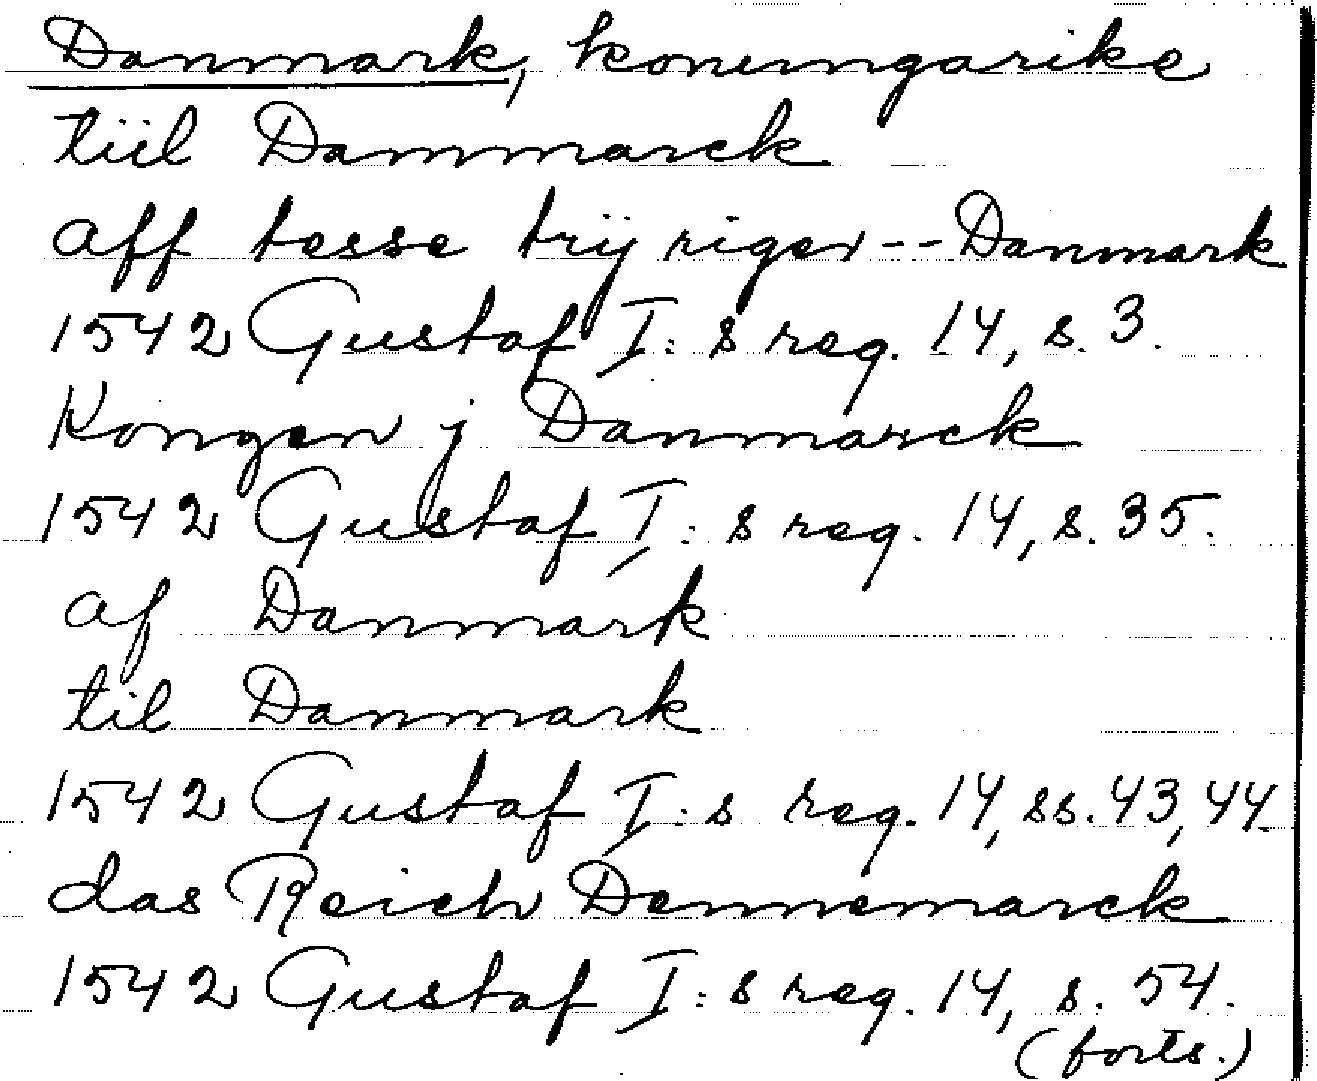 Danmark, konungarike
tiil Dammarck
aff tesse trij riger -- Danmark
1542 Gustaf I:s reg. 14, s. 3.
Kongen j Danmarck
1542 Gustaf I:s reg. 14, s. 35.
af Danmark
til Danmark
1542 Gustaf I:s reg. 14, ss. 43, 44
das Reich Dennemarck
1542 Gustaf I:s reg. 14, s. 54.
(forts.)